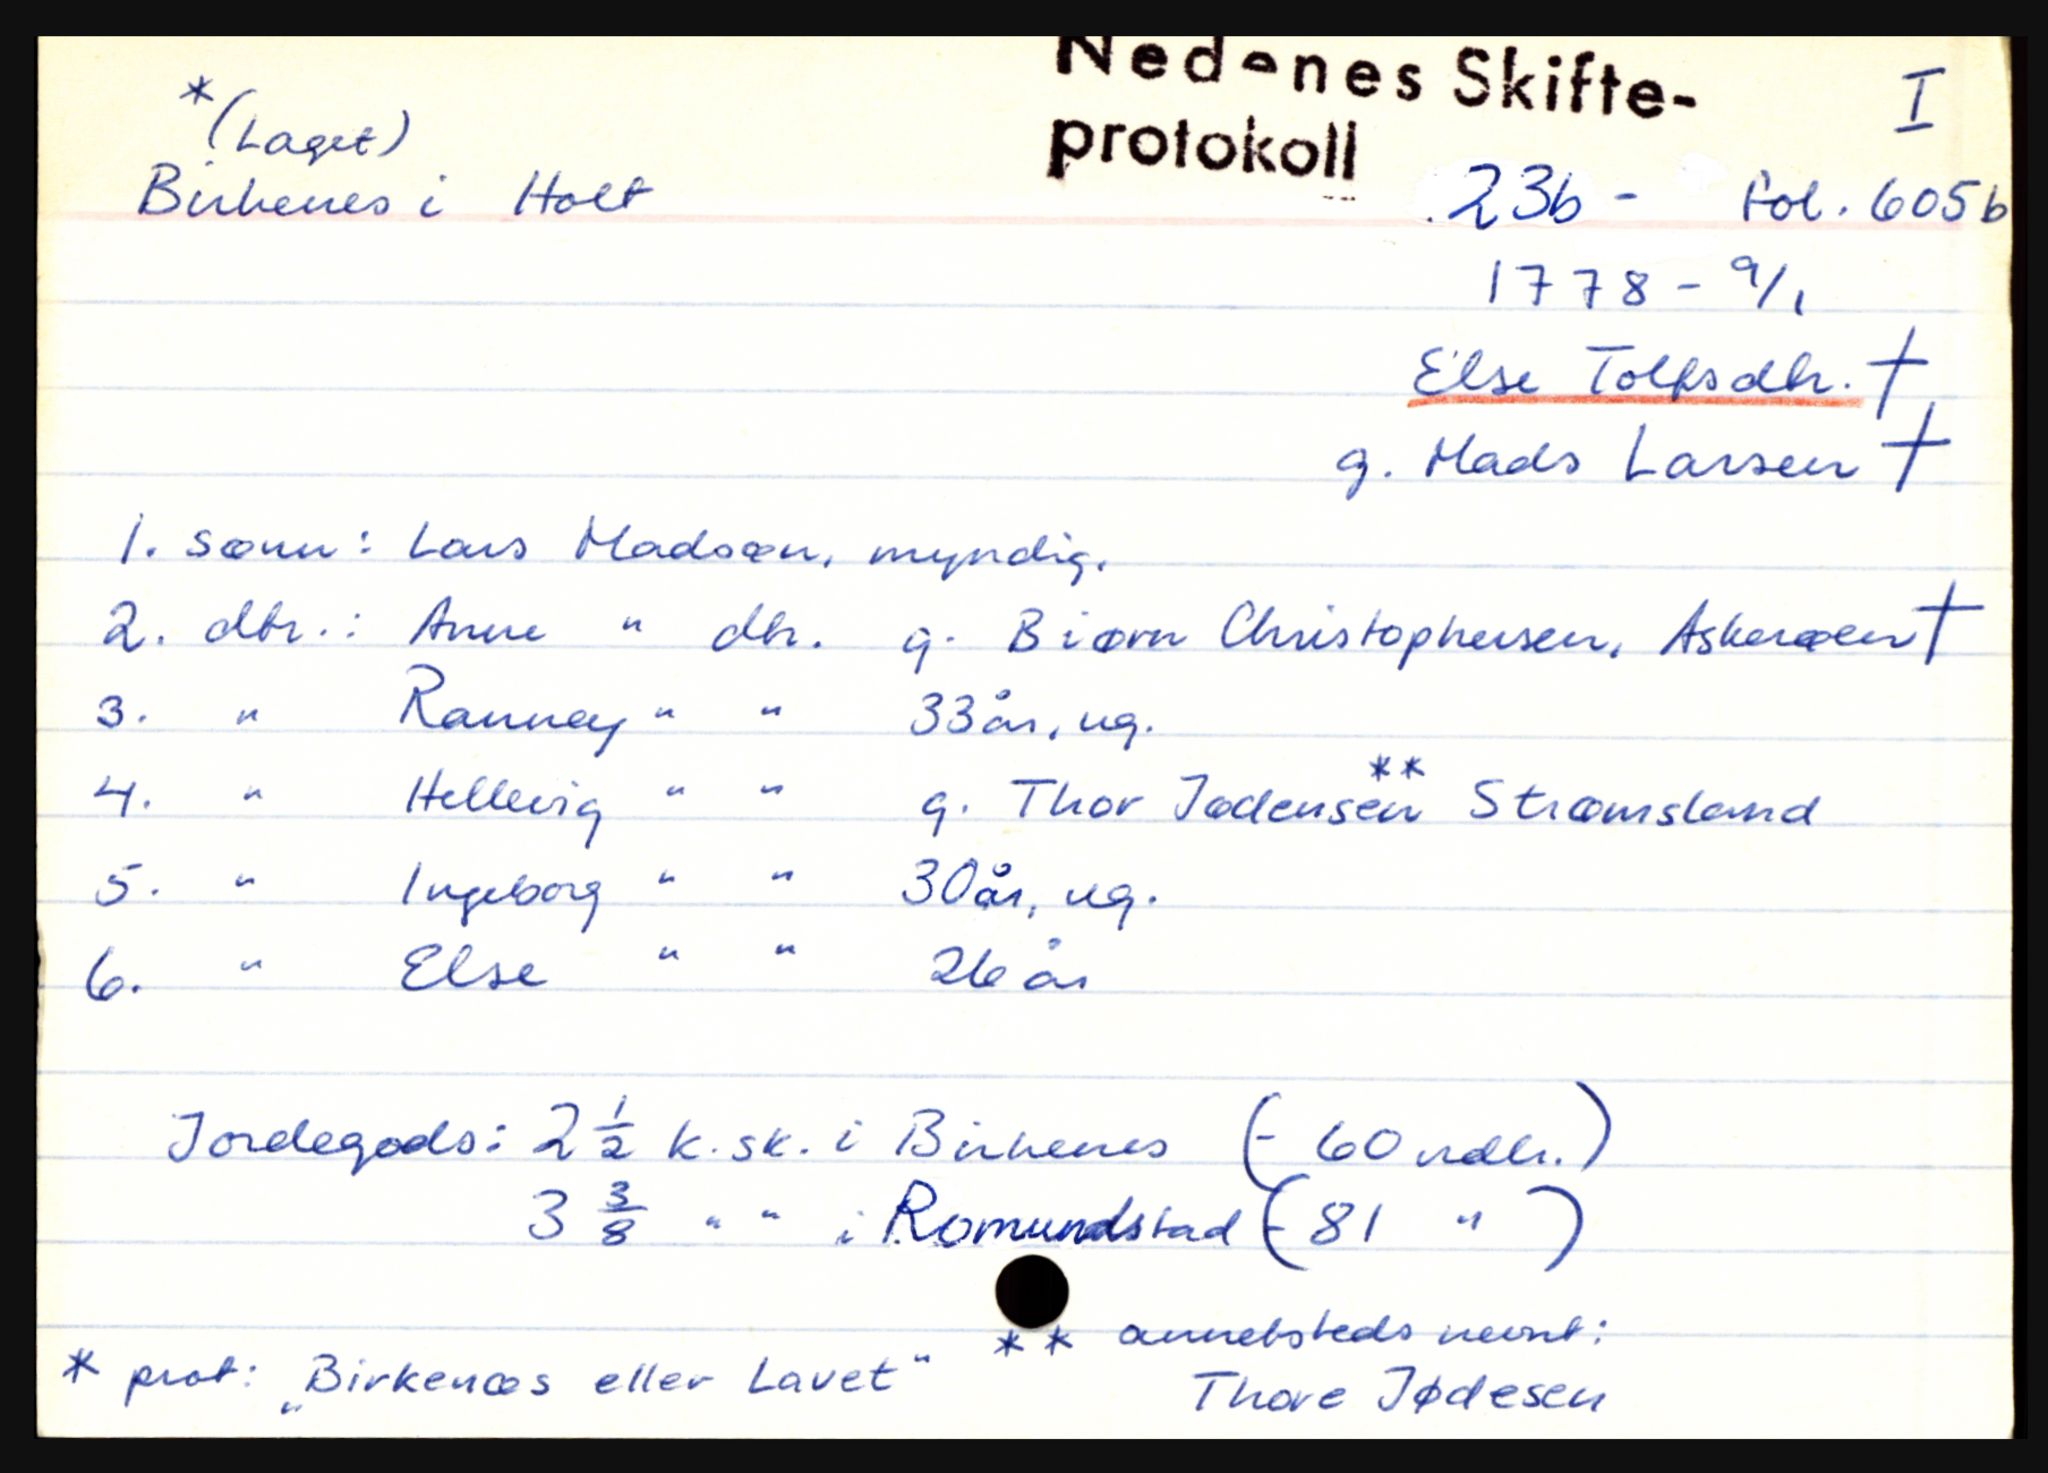 Nedenes Skifte-
protokoll
I
*(Laget)
Birkenes i Holt
23b - Fol. 605b
1778 - 9/1
Else Tolfsdtr. †
g. Mads Larsen †
1. sønn: Lars Madsøn, myndig.
2. dtr.: Anne " dtr. g. Biørn Christophersen, Askerøen †
3. " Ranney " " 33 år, ug.
4. " Hellevig " " g. Thor Jødensen ** Strømsland
5. " Ingeborg " " 30 år, ug.
6. " Else " " 26 år
Jordegods: 2 1/2 k. sk. i Birkenes (- 60 rdlr.)
3 3/8 " " i Romundstad (- 81 " )
* prot: „Birkenæs eller Lavet"
** annetsteds nevnt:
Thore Jødesen